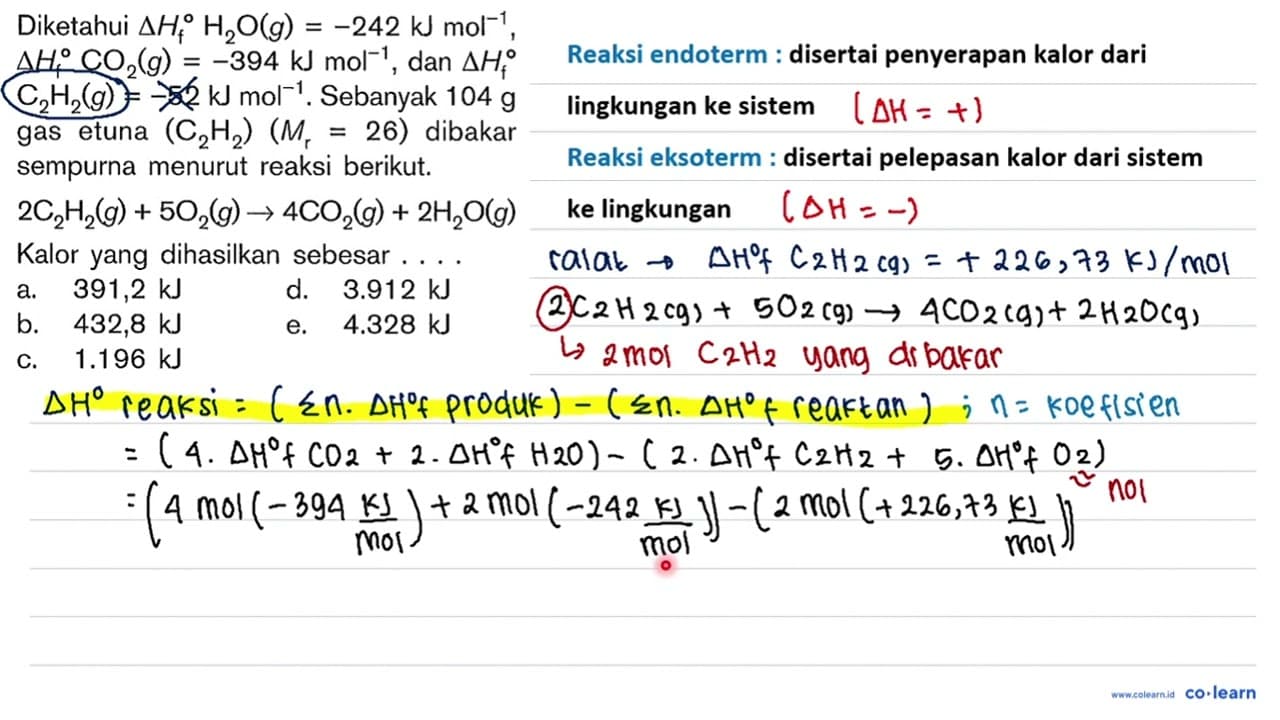 Diketahui ΔHf° H₂O(g) = −242 kJ mol⁻¹,
ΔHf° CO₂(g) = −394 kJ mol⁻¹, dan ΔHf°
C₂H₂(g) = −52 kJ mol⁻¹. Sebanyak 104 g
gas etuna (C₂H₂) (Mr = 26) dibakar
sempurna menurut reaksi berikut.
2C₂H₂(g) + 5O₂(g) → 4CO₂(g) + 2H₂O(g)
Kalor yang dihasilkan sebesar . . . .
a. 391,2 kJ d. 3.912 kJ
b. 432,8 kJ e. 4.328 kJ
c. 1.196 kJ
Reaksi endoterm : disertai penyerapan kalor dari
lingkungan ke sistem (ΔH = +)
Reaksi eksoterm : disertai pelepasan kalor dari sistem
ke lingkungan (ΔH = −)
ralat → ΔH°f C2H2(g) = + 226,73 KJ/mol
2C2H2(g) + 5O2(g) → 4CO2(g) + 2H2O(g)
↳ 2 mol C2H2 yang dibakar
ΔH° reaksi = (Σn. ΔH°f produk) − (Σn. ΔH°f reaktan) ; n = koefisien
= (4. ΔH°f CO2 + 2. ΔH°f H2O) − (2. ΔH°f C2H2 + 5. ΔH°f O2)
nol
= (4 mol (−394 KJ/mol) + 2 mol (−242 KJ/mol)) − (2 mol (+226,73 KJ/mol))
www.colearn.id co·learn